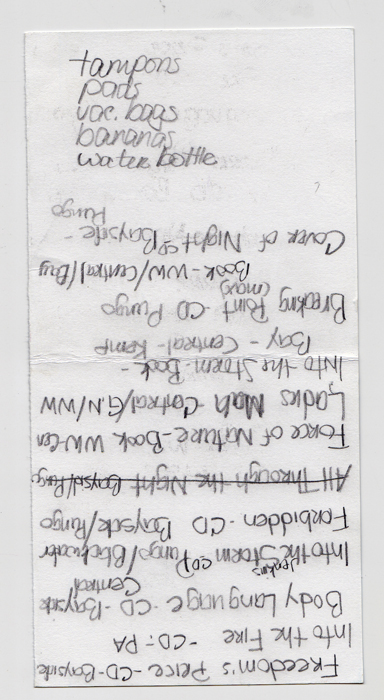 tampons
pads
vac. bags
bananas
water bottle
Freedom's Price - CD - Bayside
Into the Fire - CD - PA
Body Language - CD - Bayside
Central
Jenkins
Into the Storm CD Pungo/Blackwater
Forbidden - CD Bayside/Pungo
All Through the Night Bayside/Pungo
Force of Nature - Book WW-Cen
Ladies Man - Central/G.N/WW
Into the Storm - Book -
Bay - Central - Kemp
Breaking Point - CD Pungo
Book - WW/Central/Bay
Cover of Night CD Bayside -
Pungo